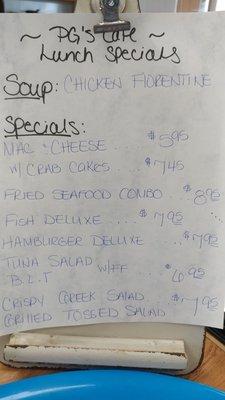 ~ PG's Cafe ~
Lunch Specials
Soup: Chicken Florentine
Specials:
Mac & Cheese .... $5.95
w/ Crab Cakes .... $7.45
Fried Seafood Combo ... $8.95
Fish Deluxe .... $7.95
Hamburger Deluxe .... $7.95
Tuna Salad
B.L.T w/FF ... $6.95
Crispy Greek Salad ... $7.95
Grilled Tossed Salad